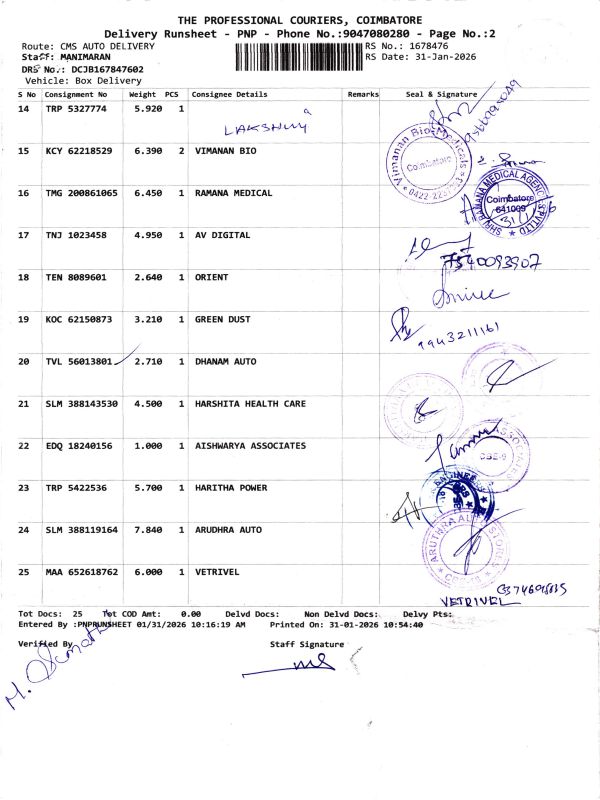 THE PROFESSIONAL COURIERS, COIMBATORE
Delivery Runsheet - PNP - Phone No.:9047080280 - Page No.:2
Route: CMS AUTO DELIVERY RS No.: 1678476
Staff: MANIMARAN RS Date: 31-Jan-2026
DRS No.: DCJB167847602
Vehicle: Box Delivery
S No Consignment No Weight PCS Consignee Details Remarks Seal & Signature
14 TRP 5327774 5.920 1
LAKSHMY
15 KCY 62218529 6.390 2 VIMANAN BIO
Vimanan Bio-Medicals
Coimbatore
16 TMG 200861065 6.450 1 RAMANA MEDICAL
SHRI RAMANA MEDICAL AGENCIES PVT LTD
Coimbatore
641009
17 TNJ 1023458 4.950 1 AV DIGITAL
7540093907
18 TEN 8089601 2.640 1 ORIENT
19 KOC 62150873 3.210 1 GREEN DUST
9943211161
20 TVL 56013801 2.710 1 DHANAM AUTO
21 SLM 388143530 4.500 1 HARSHITA HEALTH CARE
22 EDQ 18240156 1.000 1 AISHWARYA ASSOCIATES
CBE-9
23 TRP 5422536 5.700 1 HARITHA POWER
24 SLM 388119164 7.840 1 ARUDHRA AUTO
ARUTHRA AUTO STORES
25 MAA 652618762 6.000 1 VETRIVEL
VETRIVEL
Tot Docs: 25 Tot COD Amt: 0.00 Delvd Docs: Non Delvd Docs: Delvy Pts:
Entered By :PNPRUNSHEET 01/31/2026 10:16:19 AM Printed On: 31-01-2026 10:54:40
Verified By Staff Signature